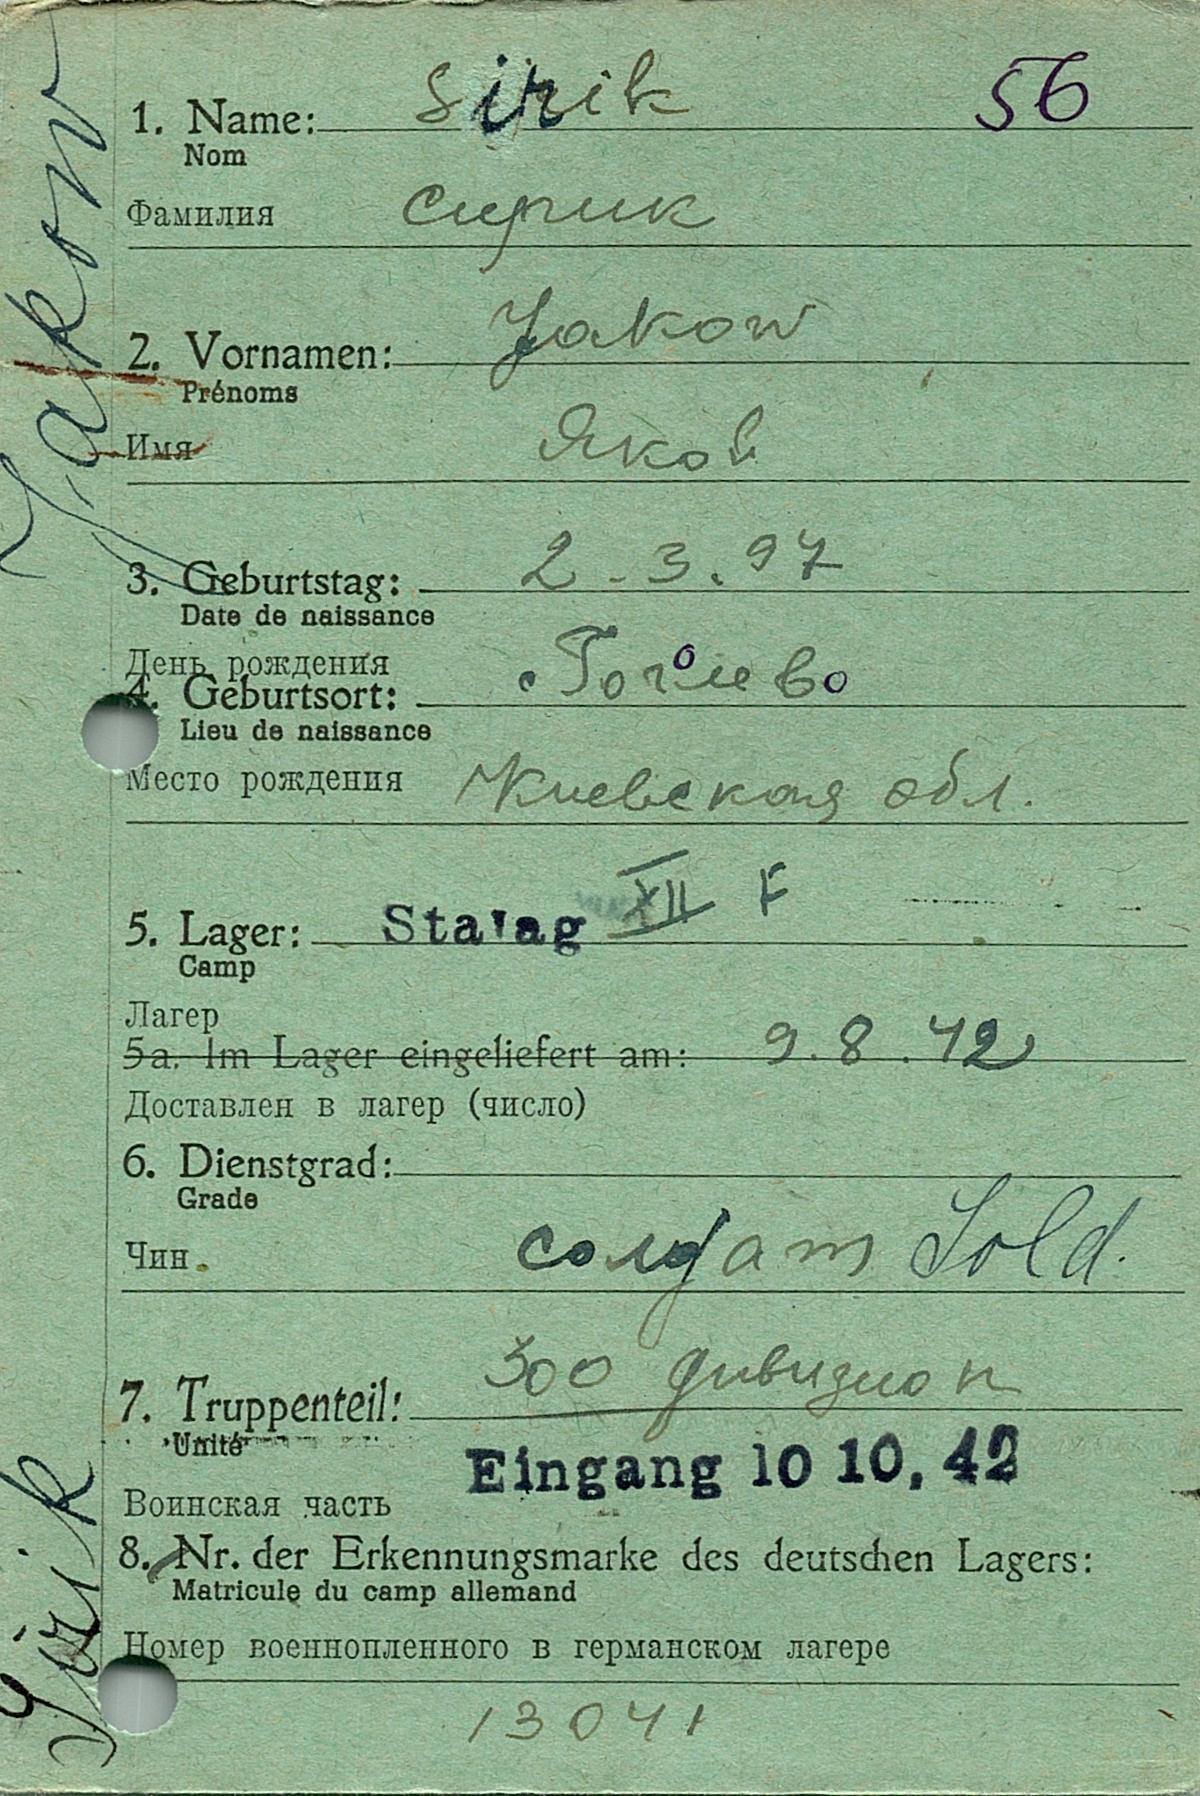 1. Name: Sirik 56
Nom
Фамилия Сирик
2. Vornamen: Jakow
Prénoms
Имя Яков
3. Geburtstag: 2.3.97
Date de naissance
День рождения
4. Geburtsort: с
Lieu de naissance
Место рождения Киевская обл.
5. Lager: Stalag XII F
Camp
Лагер
5a. Im Lager eingeliefert am: 9.8.42
Доставлен в лагер (число)
6. Dienstgrad:
Grade
Чин солдат Sold.
7. Truppenteil: 300 дивизион
Unité
Eingang 10 10. 42
Воинская часть
8. Nr. der Erkennungsmarke des deutschen Lagers:
Matricule du camp allemand
Номер военнопленного в германском лагере
13041
Sirik Jakow